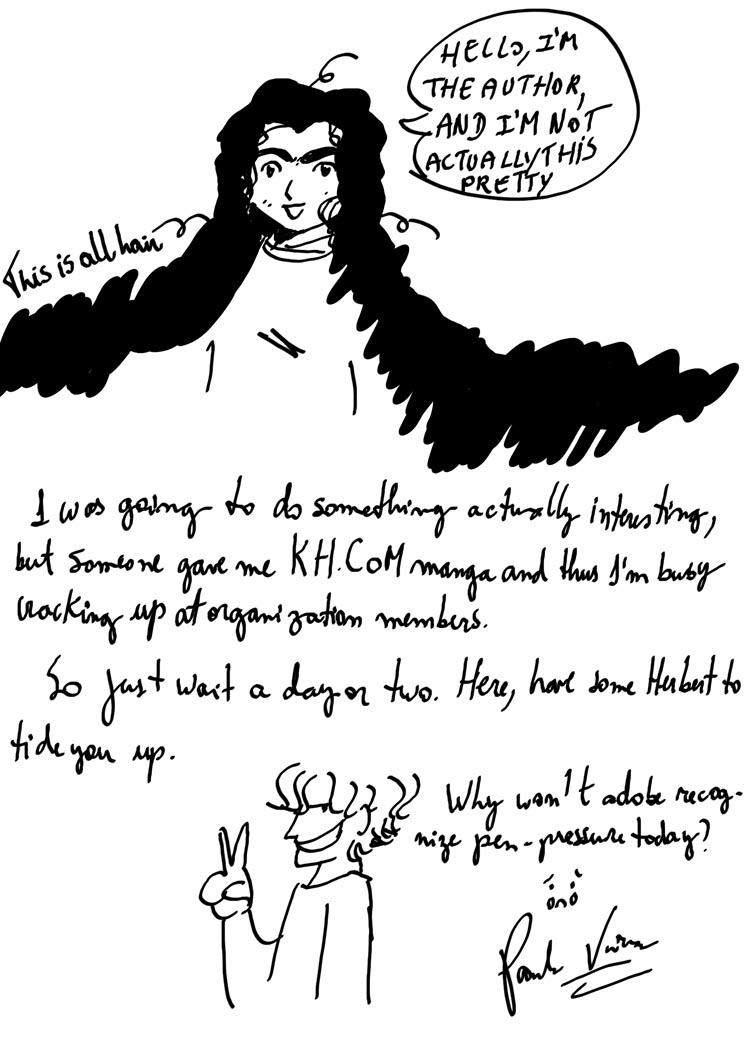 HELLO, I'M
THE AUTHOR,
AND I'M NOT
ACTUALLY THIS
PRETTY
This is all hair
I was going to do something actually interesting,
but someone gave me KH.CoM manga and thus I'm busy
cracking up at organization members.
So just wait a day or two. Here, have some Herbert to
tide you up.
Why won't adobe recog-
nize pen-pressure today?